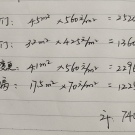 门: 45m² ×560²/m² = 252
门: 32m² ×425²/m² = 1360
41m² ×560²/m² = 2296
17.5m² ×70²/m² = 1225
计 74